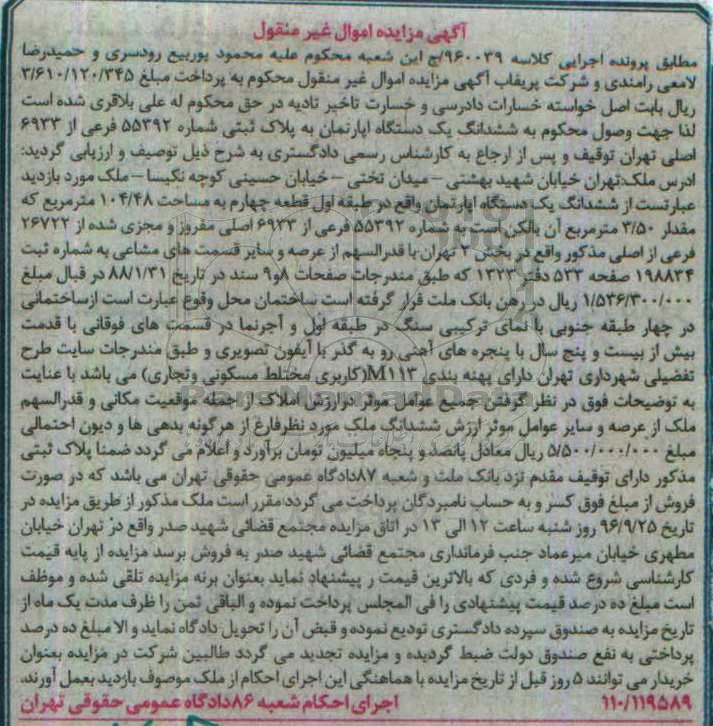 آگهی مزایده اموال غیر منقول
مطابق پرونده اجرایی کلاسه ۹۶۰۰۳۹/ج این شعبه محکوم علیه محمود پوربیع رودسری و حمیدرضا
لامعی رامندی و شرکت پریفاب آگهی مزایده اموال غیر منقول محکوم به پرداخت مبلغ ۳/۶۱۰/۱۲۰/۳۴۵
ریال بابت اصل خواسته خسارات دادرسی و خسارت تاخیر تادیه در حق محکوم له علی بلاقری شده است
لذا جهت وصول محکوم به ششدانگ یک دستگاه اپارتمان به پلاک ثبتی شماره ۵۵۳۹۲ فرعی از ۶۹۳۳
اصلی تهران توقیف و پس از ارجاع به کارشناس رسمی دادگستری به شرح ذیل توصیف و ارزیابی گردید:
ادرس ملک:تهران خیابان شهید بهشتی – میدان تختی – خیابان حسینی کوچه نکیسا – ملک مورد بازدید
عبارتست از ششدانگ یک دستگاه اپارتمان واقع در طبقه اول قطعه چهارم به مساحت ۱۰۴/۴۸ مترمربع که
مقدار ۳/۵۰ مترمربع آن بالکن است به شماره ۵۵۳۹۲ فرعی از ۶۹۳۳ اصلی مفروز و مجزی شده از ۲۶۷۲۲
فرعی از اصلی مذکور واقع در بخش ۲ تهران با قدرالسهم از عرصه و سایر قسمت های مشاعی به شماره ثبت
۱۹۸۸۳۴ صفحه ۵۳۳ دفتر ۱۳۲۳ که طبق مندرجات صفحات ۸و۹ سند در تاریخ ۸۸/۱/۳۱ در قبال مبلغ
۱/۵۳۶/۳۰۰/۰۰۰ ریال در رهن بانک ملت قرار گرفته است ساختمان محل وقوع عبارت است ازساختمانی
در چهار طبقه جنوبی با نمای ترکیبی سنگ در طبقه اول و آجرنما در قسمت های فوقانی با قدمت
بیش از بیست و پنج سال با پنجره های آهنی رو به گذر با آیفون تصویری و طبق مندرجات سایت طرح
تفضیلی شهرداری تهران دارای پهنه بندی M۱۱۳(کاربری مختلط مسکونی وتجاری) می باشد با عنایت
به توضیحات فوق در نظر گرفتن جمیع عوامل موثر درارزش املاک از جمله موقعیت مکانی و قدرالسهم
ملک از عرصه و سایر عوامل موثر ارزش ششدانگ ملک مورد نظرفارغ از هرگونه بدهی ها و دیون احتمالی
مبلغ ۵/۵۰۰/۰۰۰/۰۰۰ ریال معادل پانصد و پنجاه میلیون تومان برآورد و اعلام می گردد ضمنا پلاک ثبتی
مذکور دارای توقیف مقدم نزد بانک ملت و شعبه ۸۷دادگاه عمومی حقوقی تهران می باشد که در صورت
فروش از مبلغ فوق کسر و به حساب نامبردگان پرداخت می گردد مقرر است ملک مذکور از طریق مزایده در
تاریخ ۹۶/۹/۲۵ روز شنبه ساعت ۱۲ الی ۱۳ در اتاق مزایده مجتمع قضائی شهید صدر واقع در تهران خیابان
مطهری خیابان میرعماد جنب فرمانداری مجتمع قضائی شهید صدر به فروش برسد مزایده از پایه قیمت
کارشناسی شروع شده و فردی که بالاترین قیمت ر پیشنهاد نماید بعنوان برنه مزایده تلقی شده و موظف
است مبلغ ده درصد قیمت پیشنهادی را فی المجلس پرداخت نموده و الباقی ثمن را ظرف مدت یک ماه از
تاریخ مزایده به صندوق سپرده دادگستری تودیع نموده و قبض آن را تحویل دادگاه نماید و الا مبلغ ده درصد
پرداختی به نفع صندوق دولت ضبط گردیده و مزایده تجدید می گردد طالبین شرکت در مزایده بعنوان
خریدار می توانند ۵ روز قبل از تاریخ مزایده با هماهنگی این اجرای احکام از ملک موصوف بازدید بعمل آورند.
۱۱۰/۱۱۹۵۸۹ اجرای احکام شعبه ۸۶دادگاه عمومی حقوقی تهران